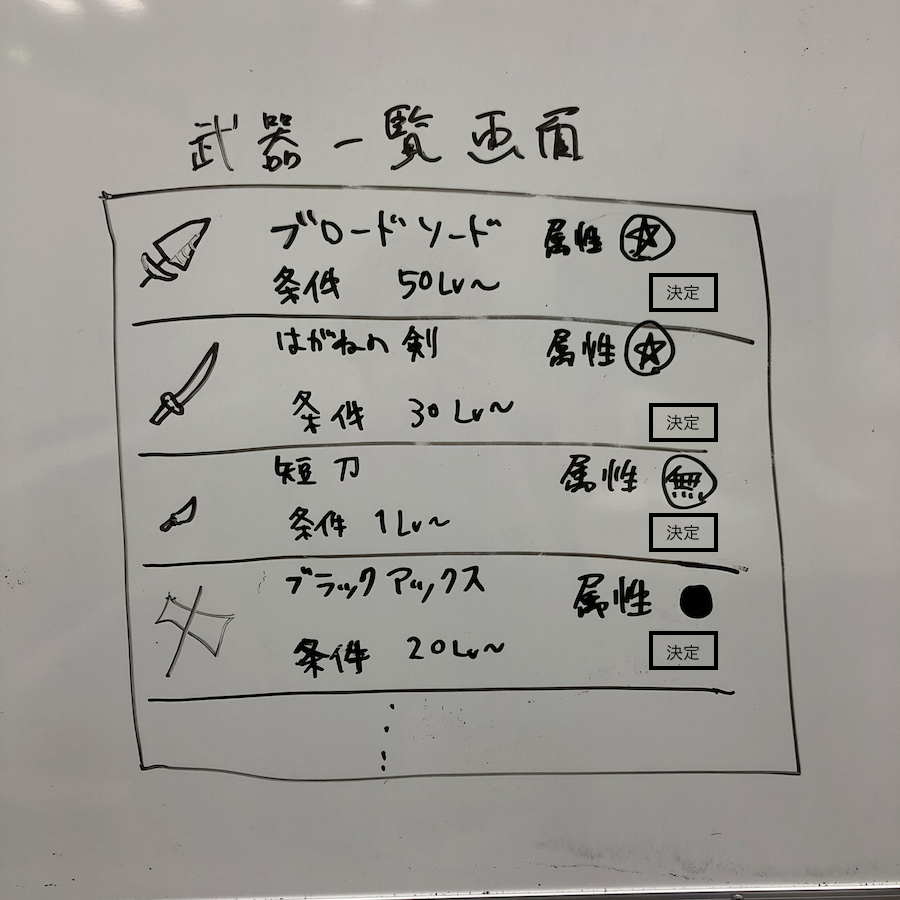 武器一覧画面
ブロードソード 属性
条件 50Lv〜 決定
はがねの剣 属性
条件 30Lv〜 決定
短刀 属性 無
条件 1Lv〜 決定
ブラックアックス 属性
条件 20Lv〜 決定